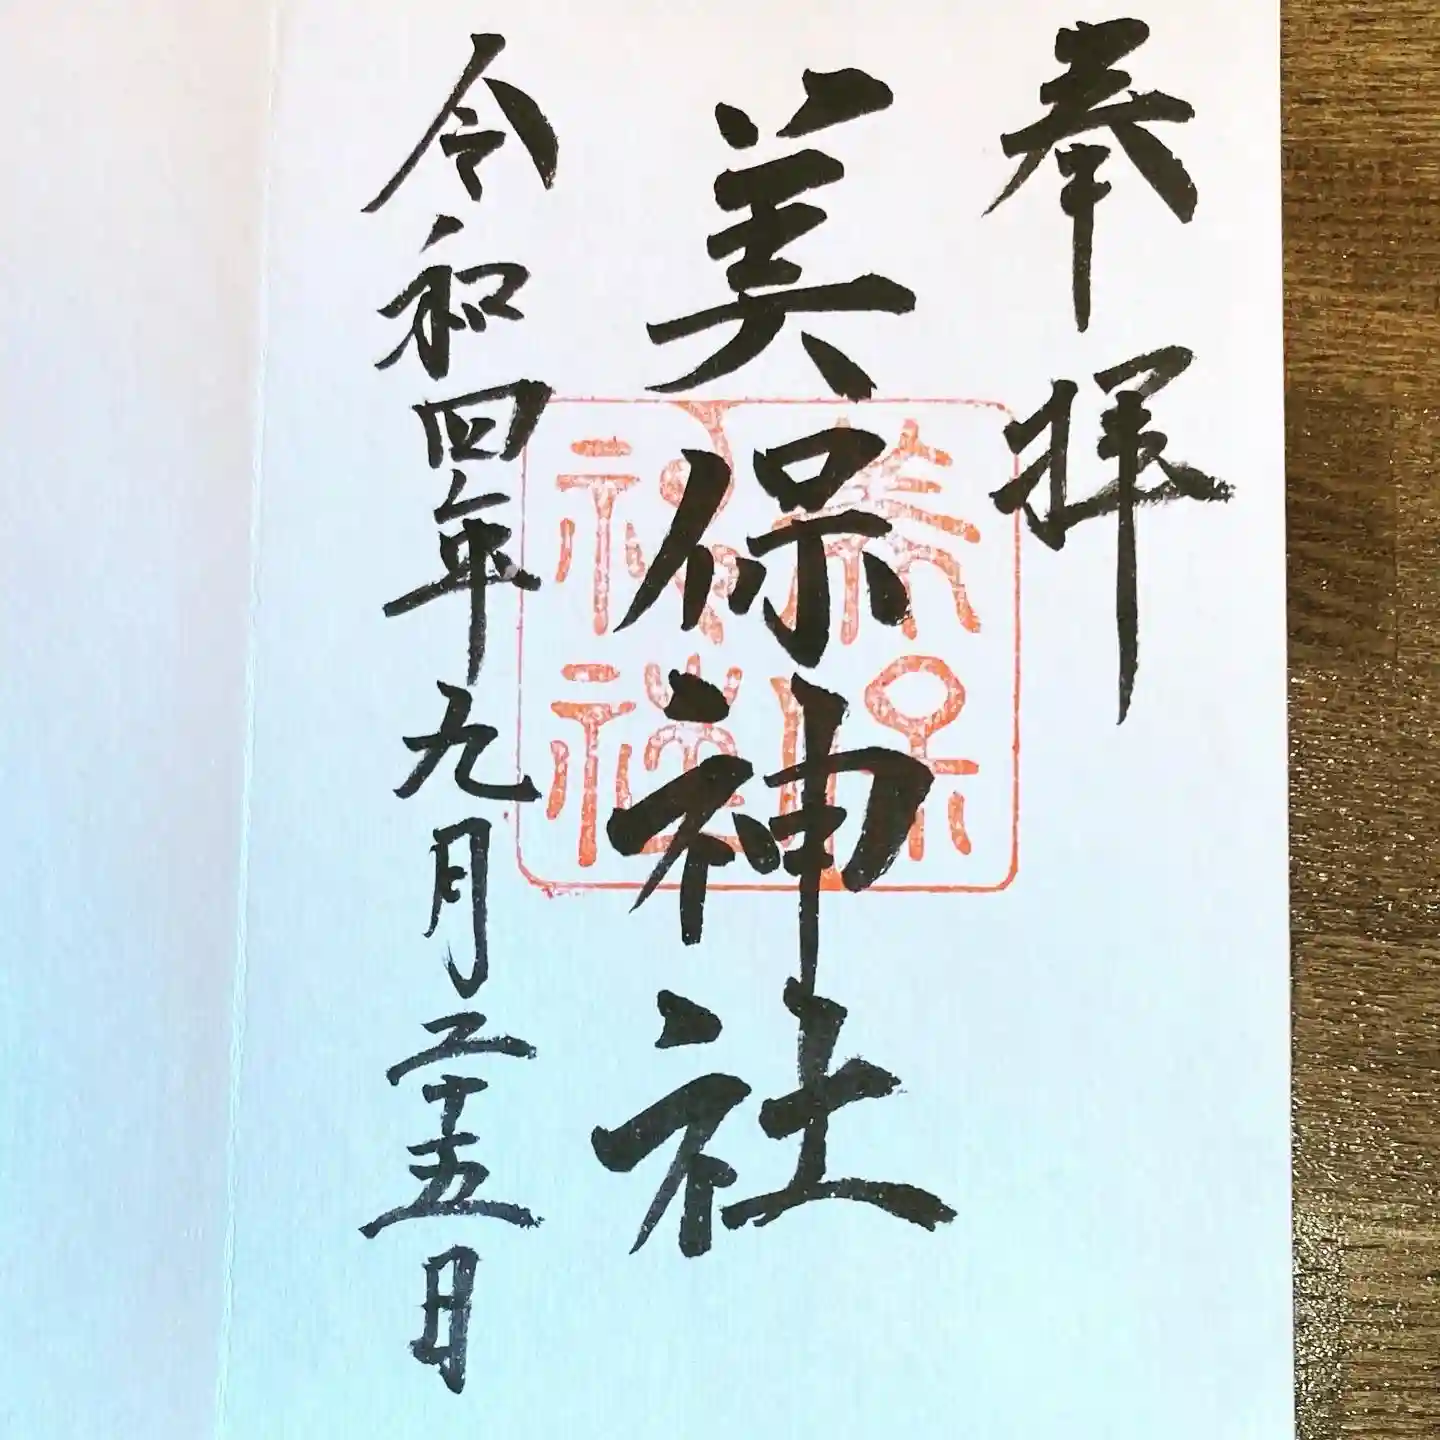 奉拝
美保神社
美保神社
令和四年九月二十五日